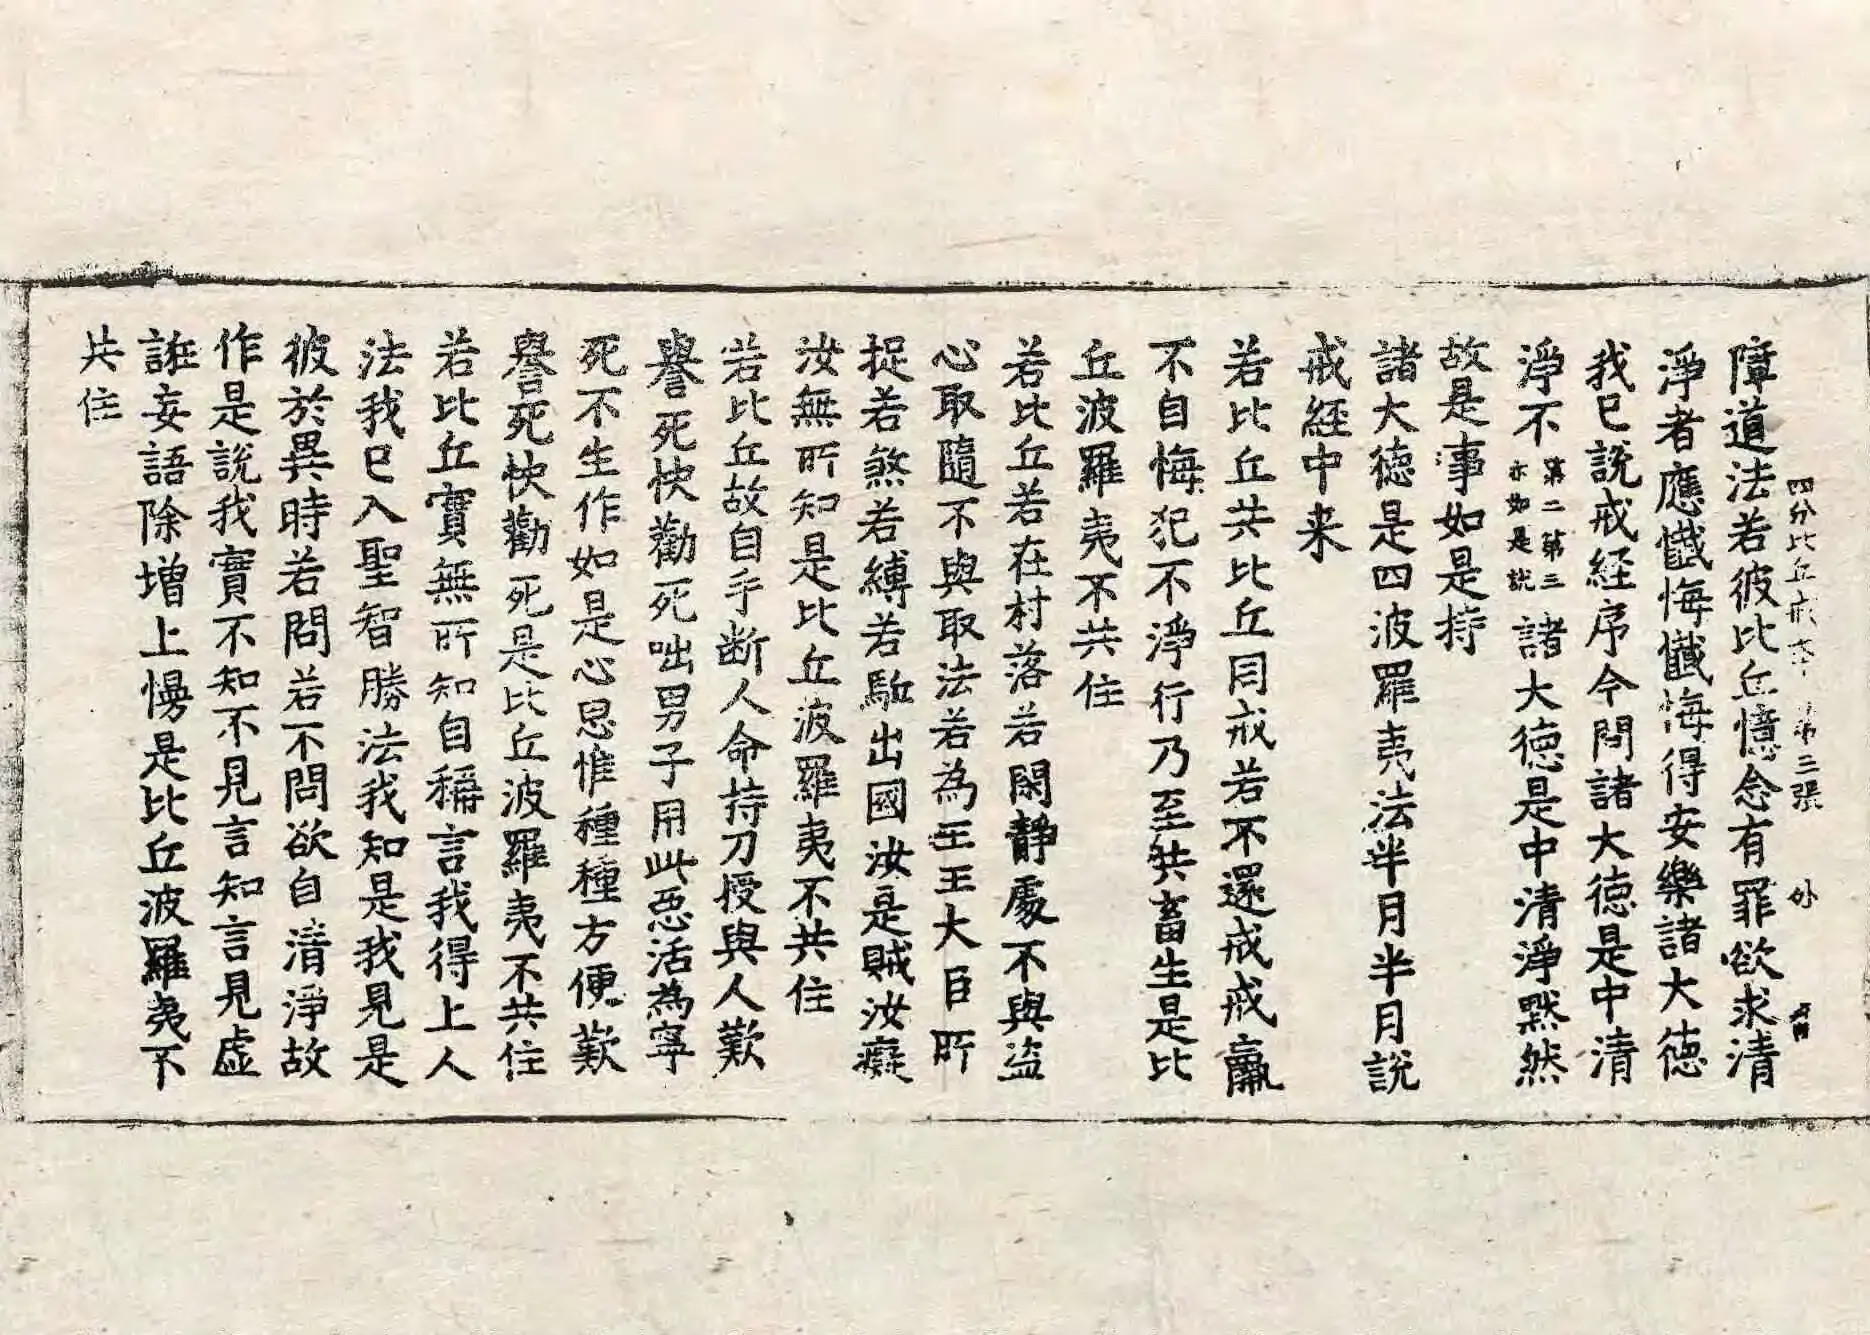 四分比丘戒本 第三張 外
障道法若彼比丘憶念有罪欲求清
淨者應懺悔懺悔得安樂諸大德
我已說戒経序今問諸大德是中清
淨不第二第三亦如是說諸大德是中清淨黙然
故是事如是持
諸大德是四波羅夷法半月半月說
戒経中来
若比丘共比丘同戒若不還戒戒羸
不自悔犯不淨行乃至共畜生是比
丘波羅夷不共住
若比丘若在村落若閑靜處不與盜
心取隨不與取法若為王王大臣所
捉若煞若縛若駈出國汝是賊汝癡
汝無所知是比丘波羅夷不共住
若比丘故自手断人命持刀授與人歎
譽死快勸死咄男子用此惡活為寧
死不生作如是心思惟種種方便歎
譽死快勸死是比丘波羅夷不共住
若比丘實無所知自稱言我得上人
法我已入聖智勝法我知是我見是
彼於異時若問若不問欲自清淨故
作是說我實不知不見言知言見虛
誑妄語除增上慢是比丘波羅夷不
共住